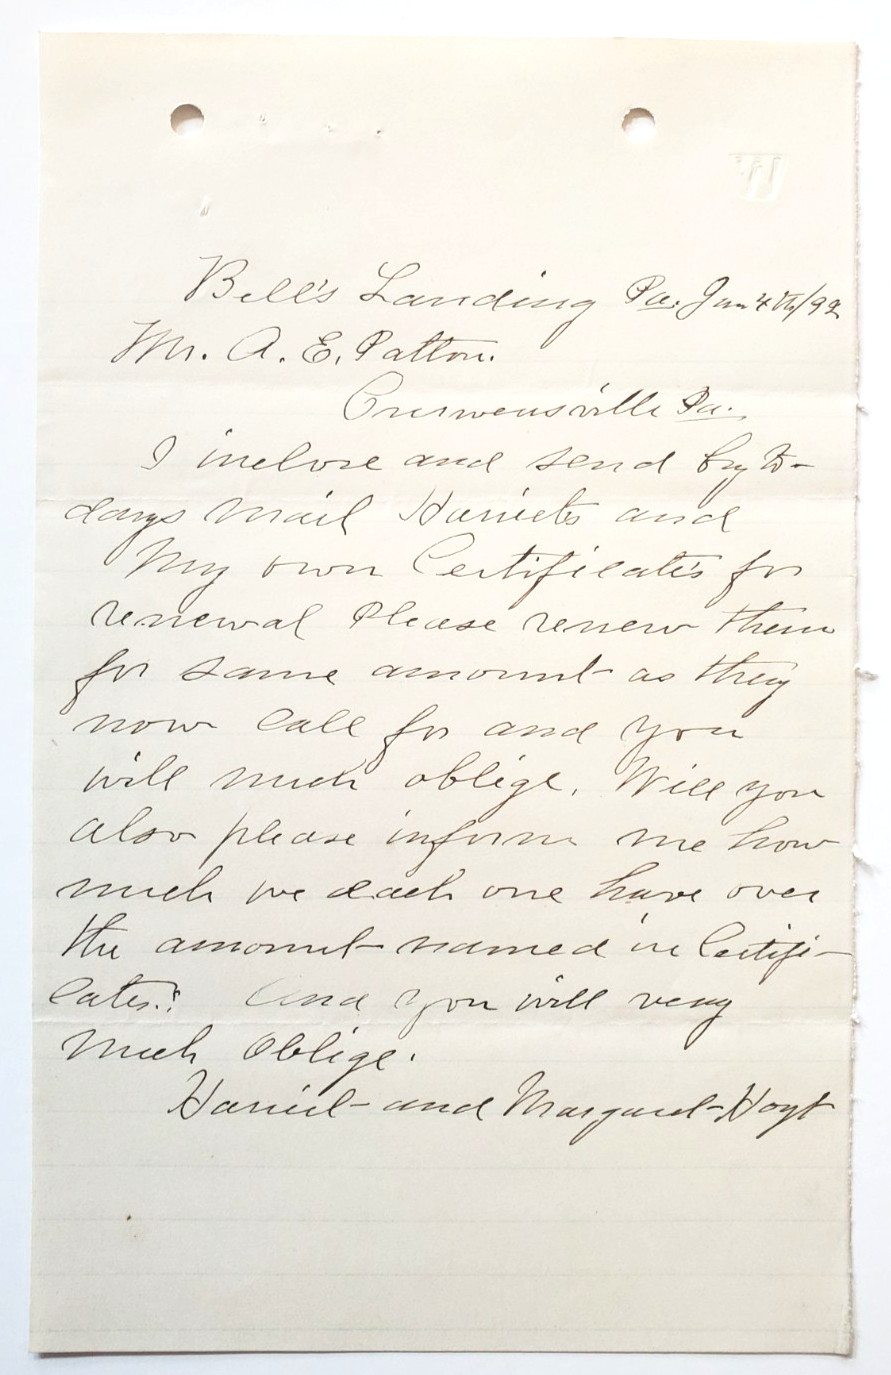 Bell's Landing Pa. Jan 4th/92
Mr. A. E. Patton.
Curwensville Pa.
I inclose and send by to-
days mail Harriets and
My own Certificates for
renewal Please renew them
for same amount as they
now call for and you
will much oblige. Will you
also please inform me how
much we each one have over
the amount named in Certifi-
cates.? And you will very
Much Oblige.
Harriet and Margaret Hoyt